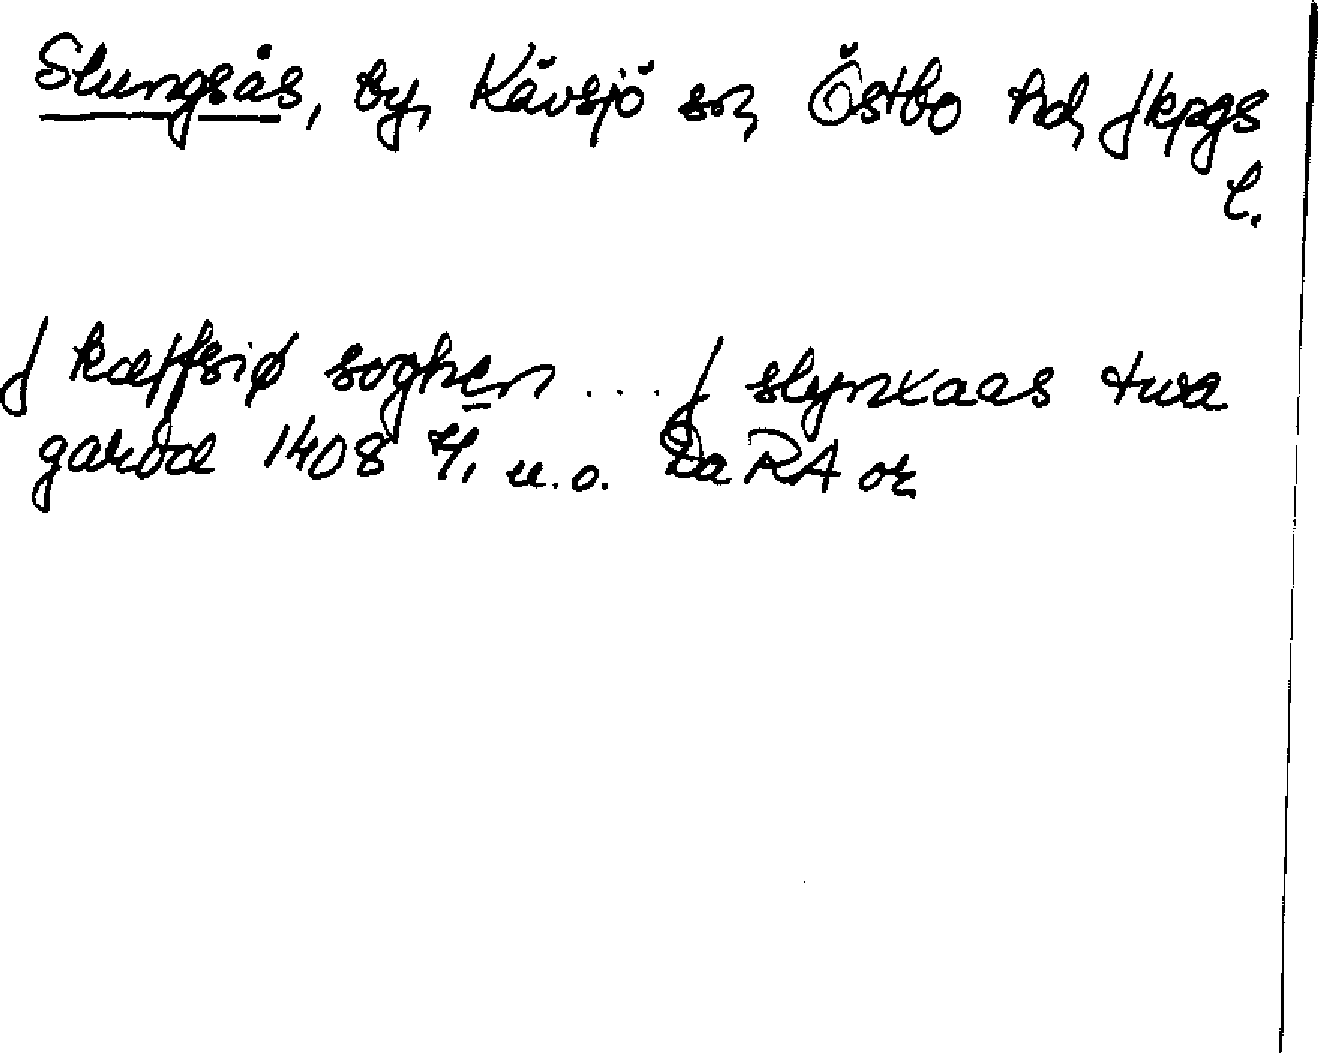 Slungsås, by, Kävsjö sn, Östbo hd, Jkpgs
l.
J kæffsiø soghen ... J slynxaas twa
garda 1408 u.o. Da RA or